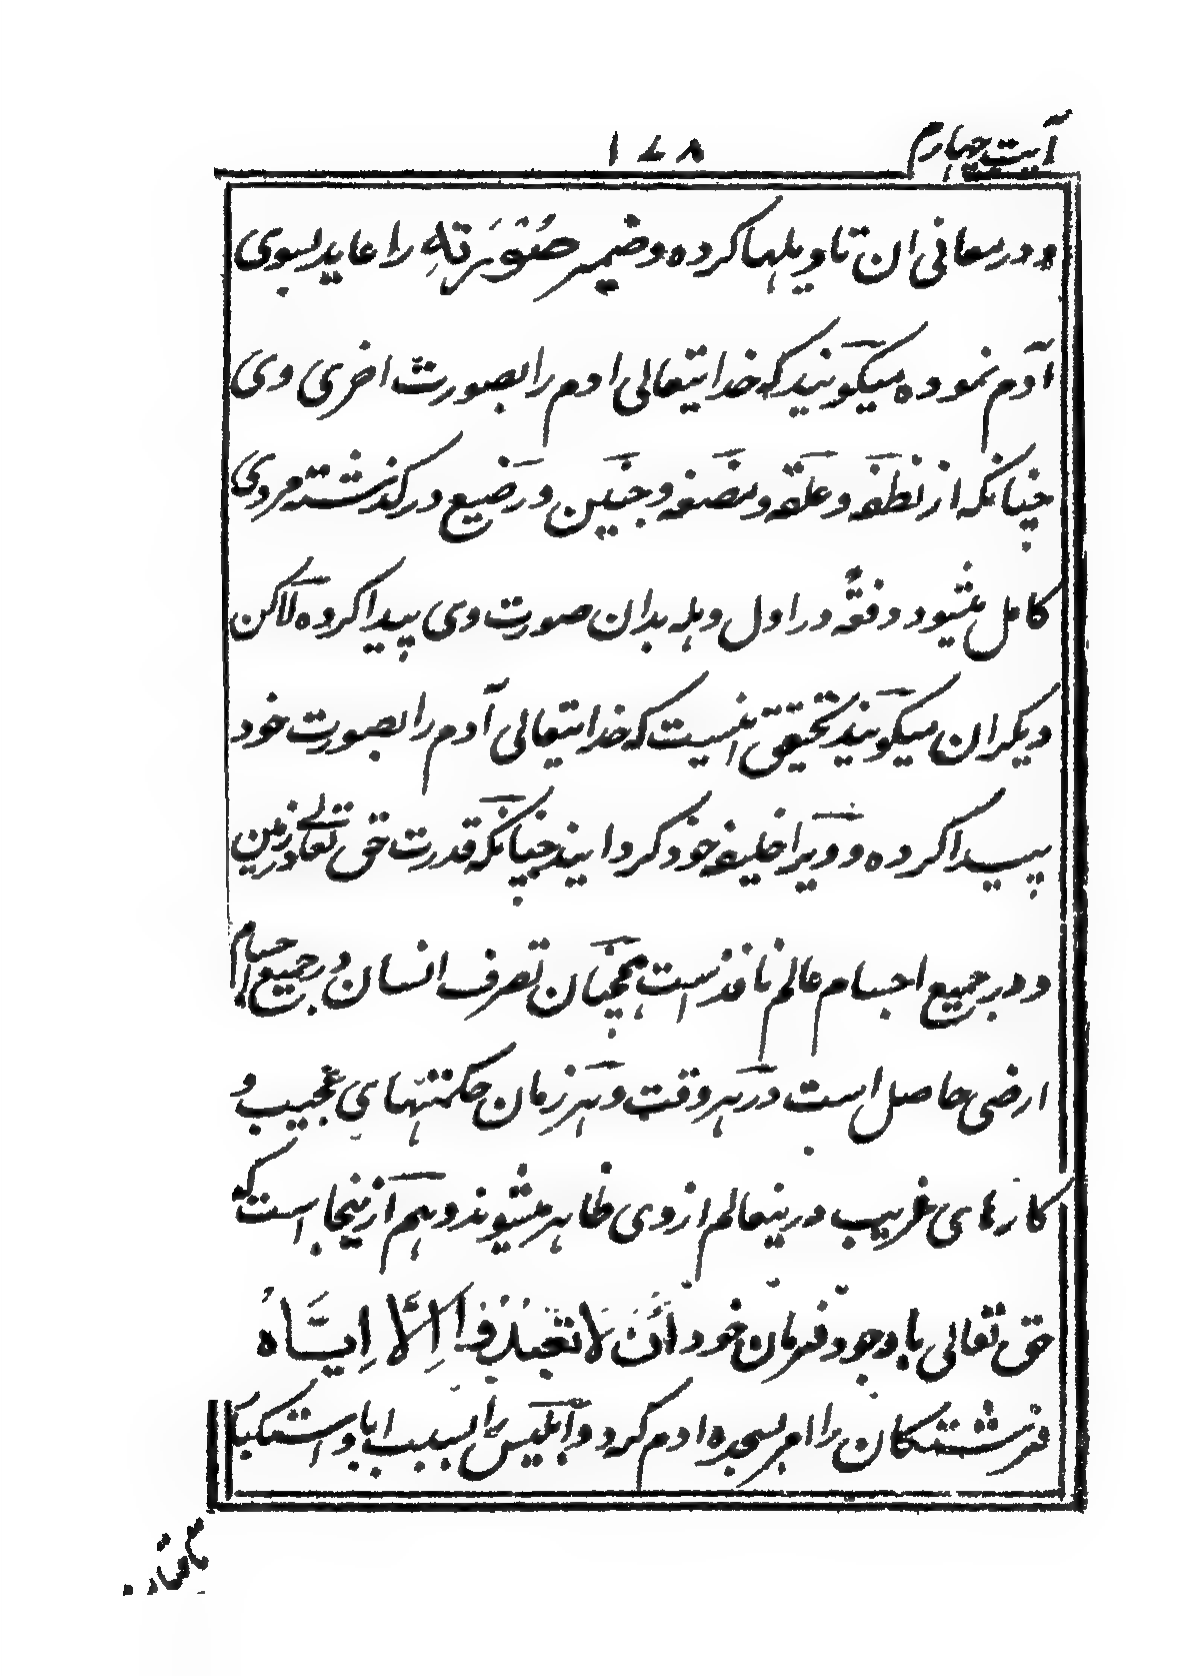 آیت چهارم
۱۷۸
و در معانی ان تاویلها کرده و ضمیر صُوْرَتِهِ را عاید بسوی
آدم نموده میکویند که خدایتعالی ادم را بصورت اخری وی
چنانکه از نطفه و علقه و مضغه و جنین و رضیع در کذشته مردی
کامل میشود دفعةً در اول وهله بدان صورت وی پیدا کرده لاکن
دیکران میکویند تحقیق اینست که خدایتعالی آدم را بصورت خود
پیدا کرده و ویرا خلیفه خود کردانید چنانکه قدرت حق تعالے در زمین
و در جمیع اجسام عالم نافذ است همچنان تصرف انسان در جمیع اجسام
ارضی حاصل است در هر وقت و هر زمان حکمتهای عجیب و
کارهای غریب درینعالم از وی ظاهر میشوند و هم ازینجا است که
حق تعالی با وجود فرمان خود اَنْ لَا تَعْبُدُوْا اِلَّا اِیَّاهُ
فرشتکان را امر بسجده ادم کرد و ابلیس را بسبب ابا و استکبا